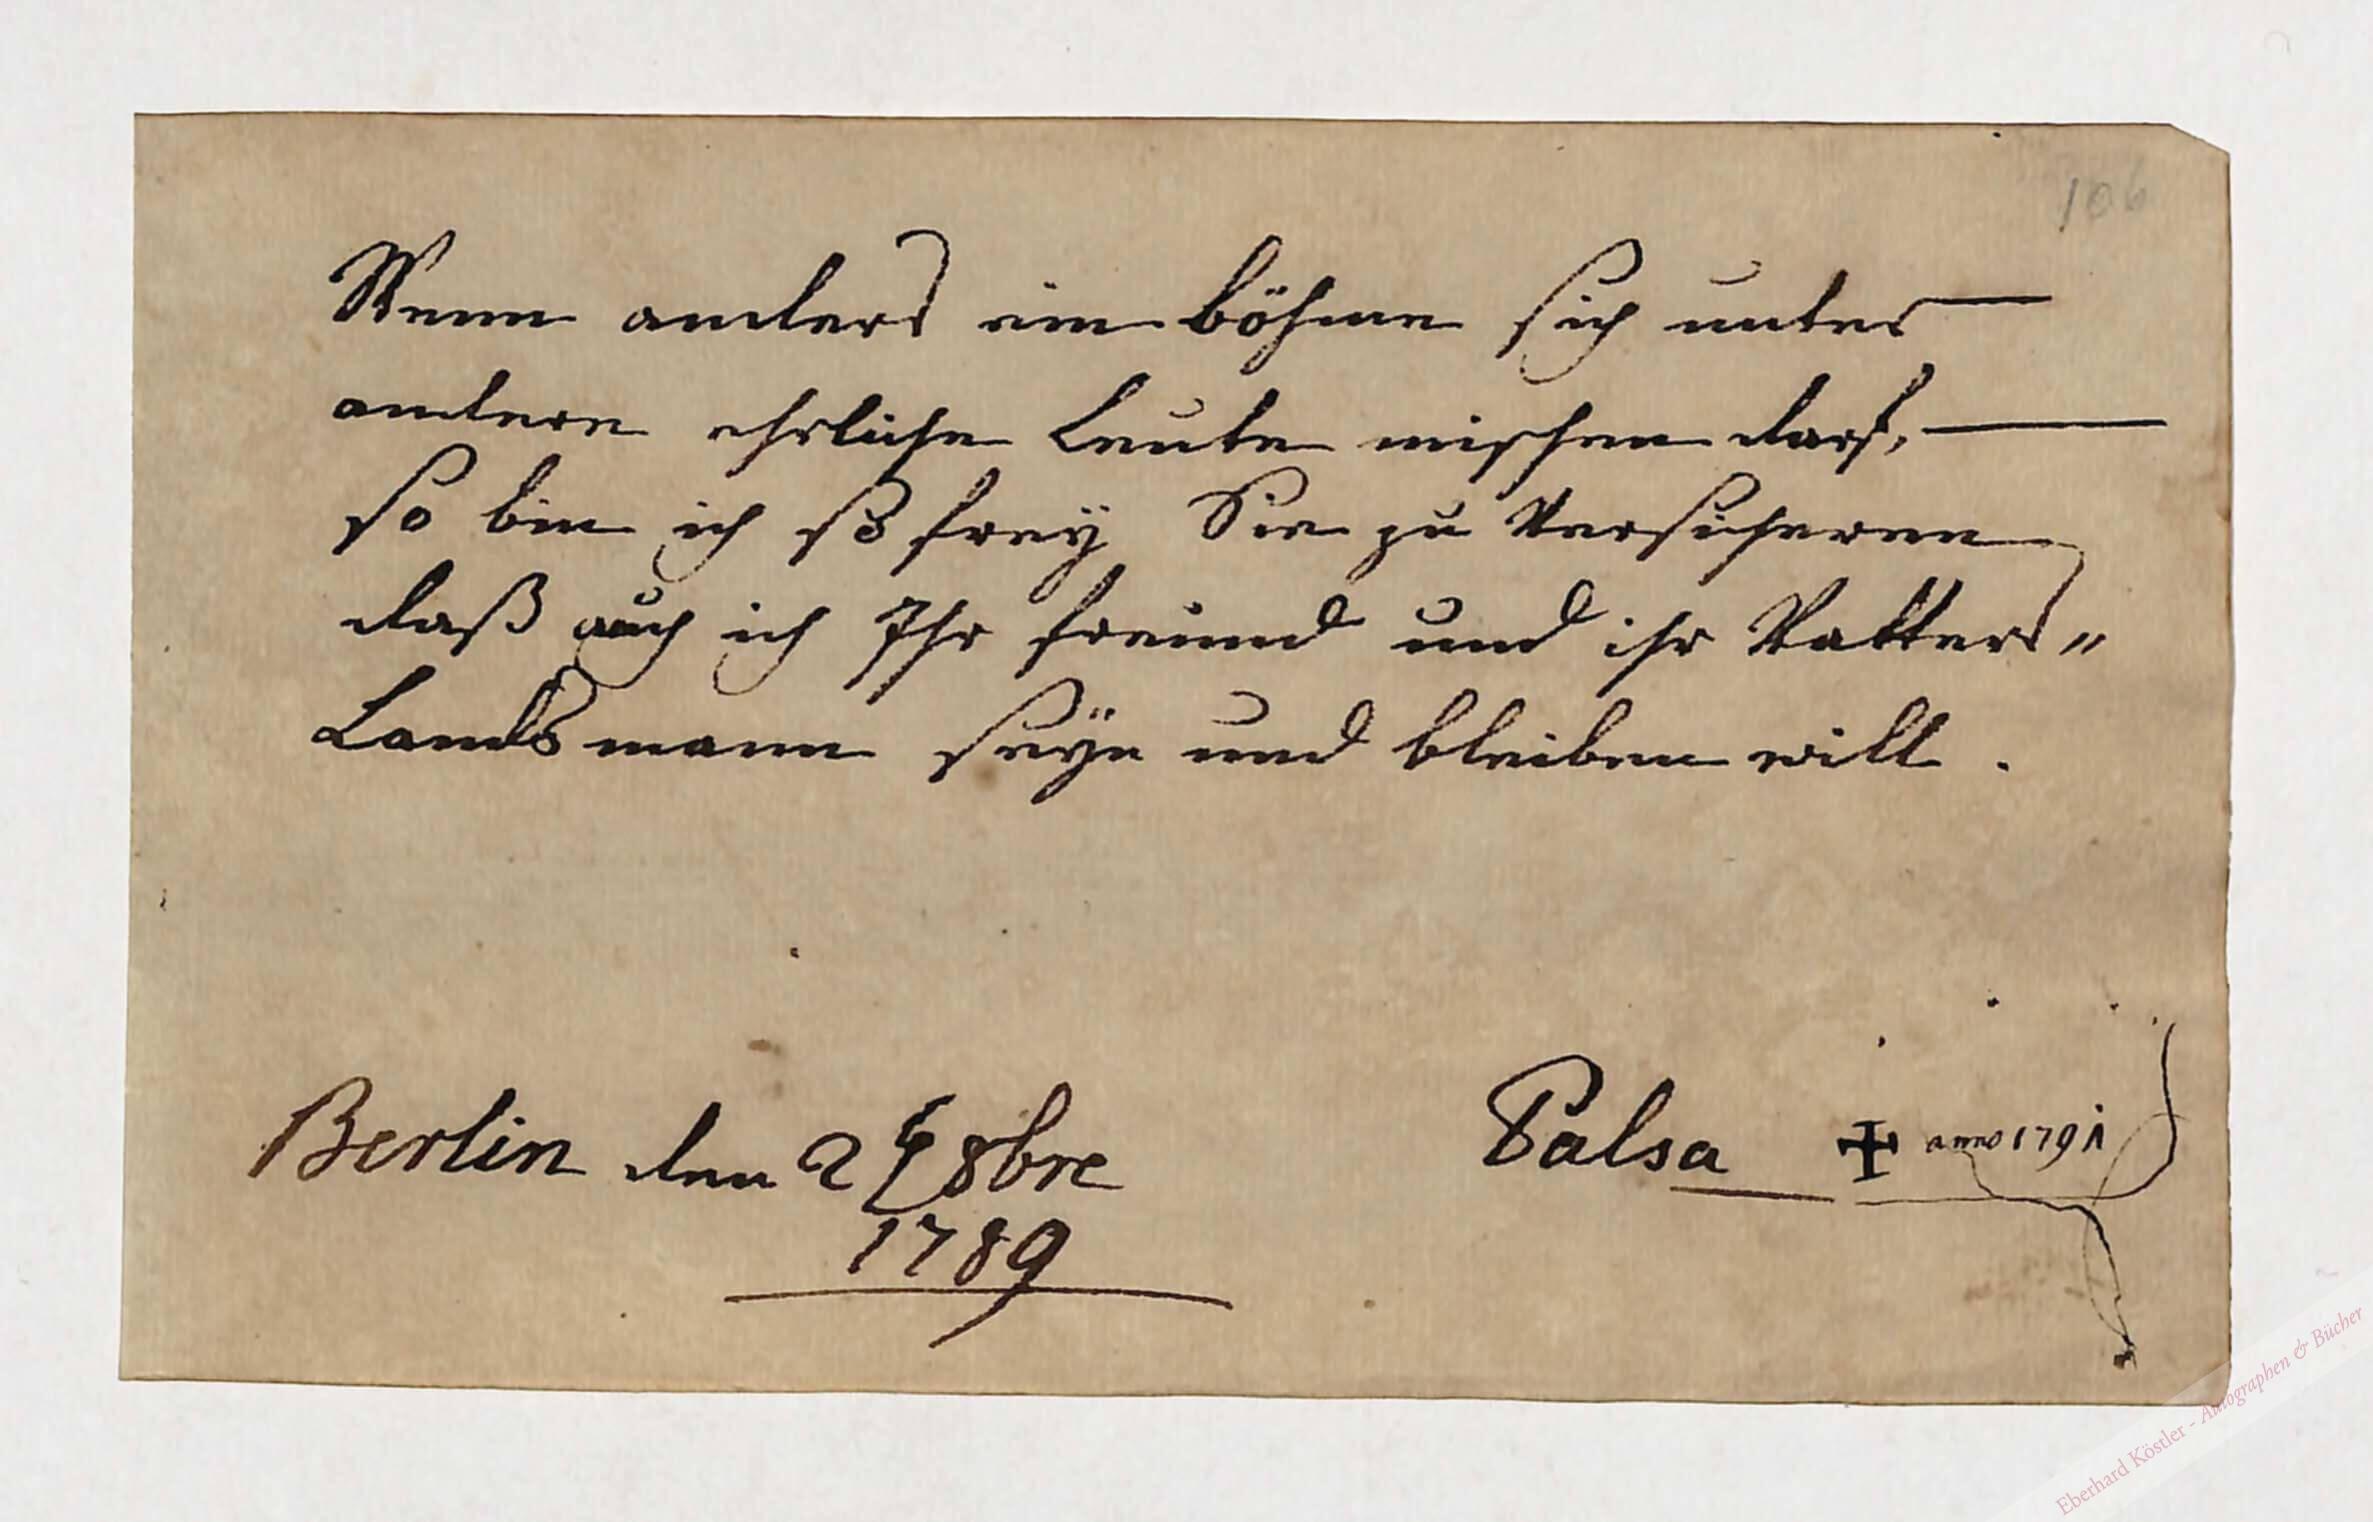 106
Wenn anders ein böhme sich unter
andere ehrliche Leute mischen darf,
so bin ich so frey Sie zu Versicheren
daß auch ich Ihr freund und ihr Vatters〃
Lands mann seÿe und bleiben will.
Berlin den 8bre
1789
Palsa ✠ anno 1791
Eberhard Köstler - Autographen & Bücher